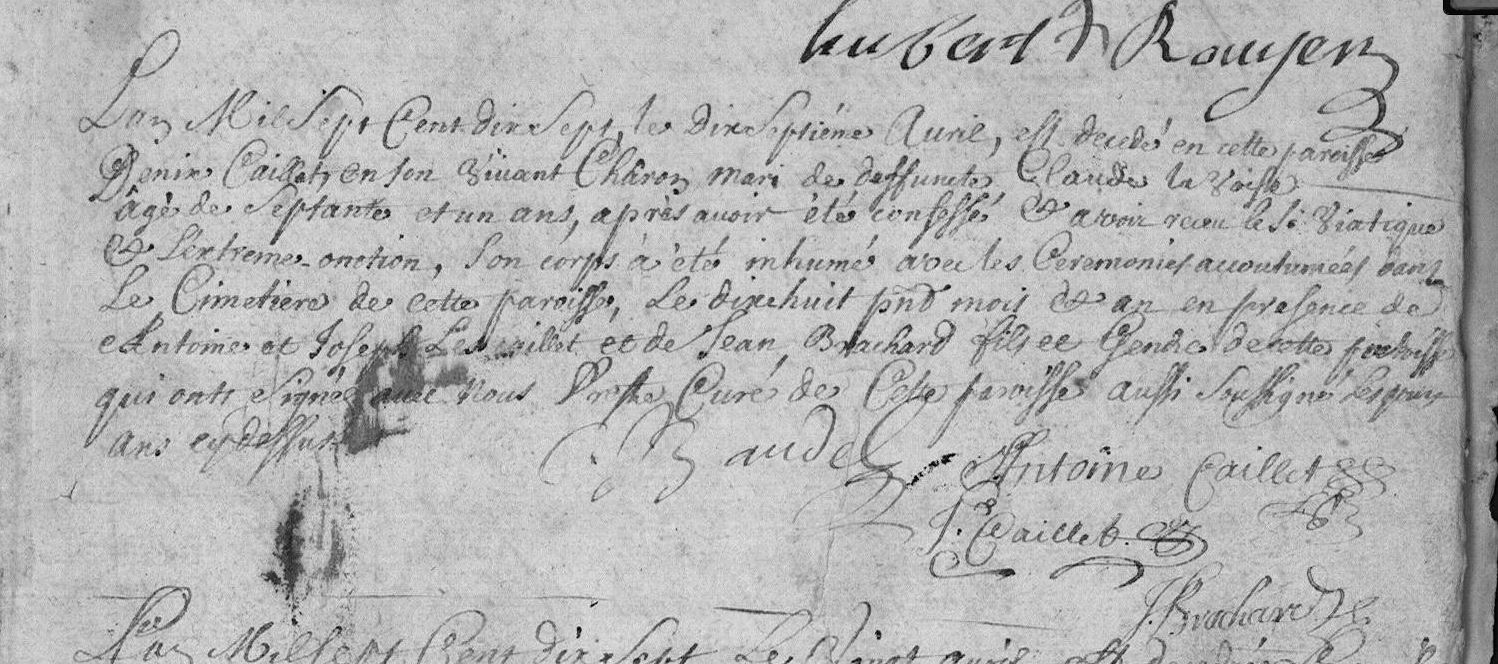 hubert Rouyer
L'an Mil Sept Cent dix Sept, le dixSeptiéme Avril, est decedé en cette paroisse
Denix Caillet, en son vivant Chãron mari de deffuncte Claude la Voise
âgé de Septante et un ans, aprés avoir été confessé & avoir receu le St Viatique
& L'extreme-onction, Son corps à été inhumé avec les Ceremonies accoutumées dans
Le Cimetiere de cette paroisse, Le dixchuit pnd mois & an en presence de
Antoine et Joseph Les Caillet et de Jean Brachard fils et Gendre de cette paroisse
qui ont Signé avec Nous Prste Curé de Cette paroisse aussi Soussigné Les jour
Ans cy dessus
C. Baudel
Antoine Caillet
J. Caillet
J. Brachard
L'an Mil Sept Cent dix Sept Le Vingt avril est